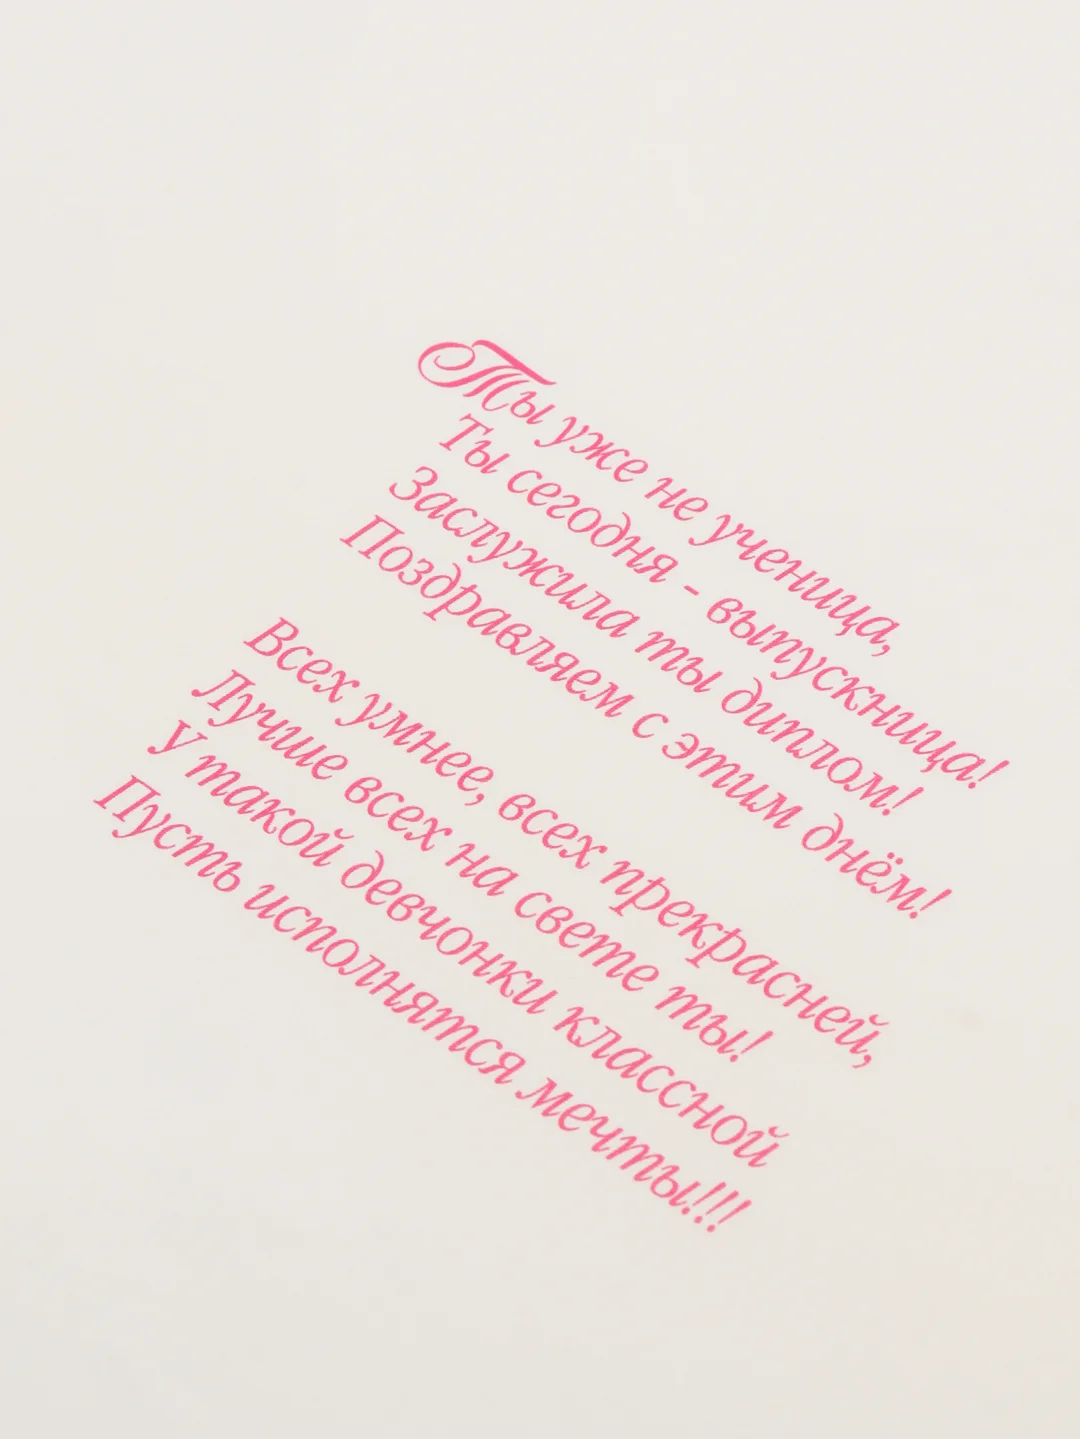 Ты уже не ученица,
Ты сегодня - выпускница!
Заслужила ты диплом!
Поздравляем с этим днём!
Всех умнее, всех прекрасней,
Лучше всех на свете ты!
У такой девчонки классной
Пусть исполнятся мечты!!!